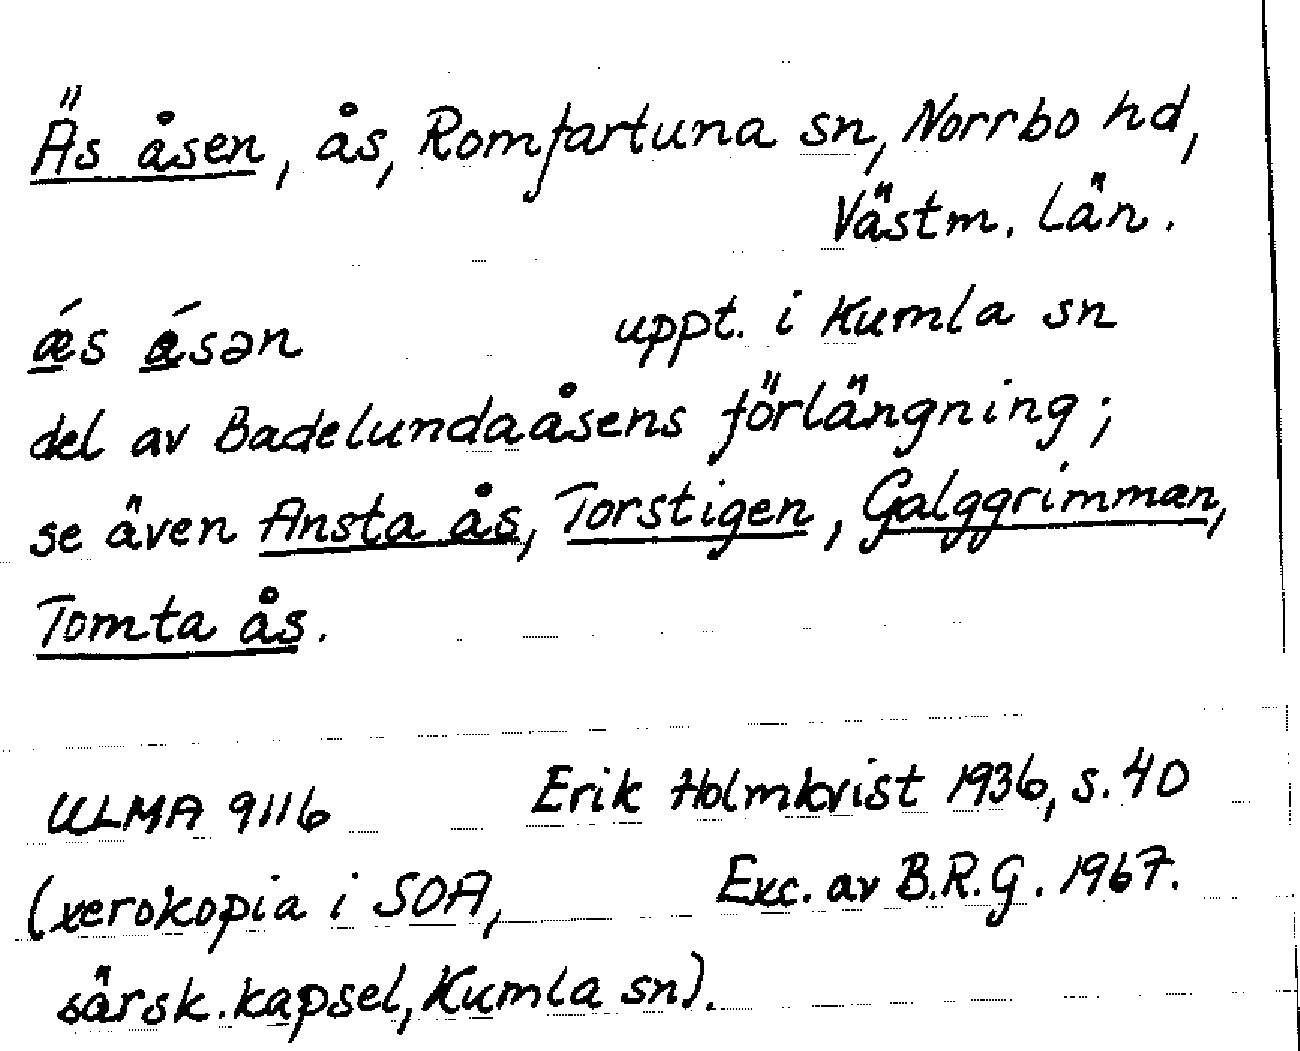 Äs åsen, ås, Romfartuna sn, Norrbo hd,
Västm. län.
ǽs ásən uppt. i Kumla sn
del av Badelundaåsens förlängning;
se även Ansta ås, Torstigen, Galggrimman,
Tomta ås.
ULMA 9116 Erik Holmkvist 1936, s. 40
(xerokopia i SOA, Exc. av B.R.G. 1967.
särsk. kapsel, Kumla sn).